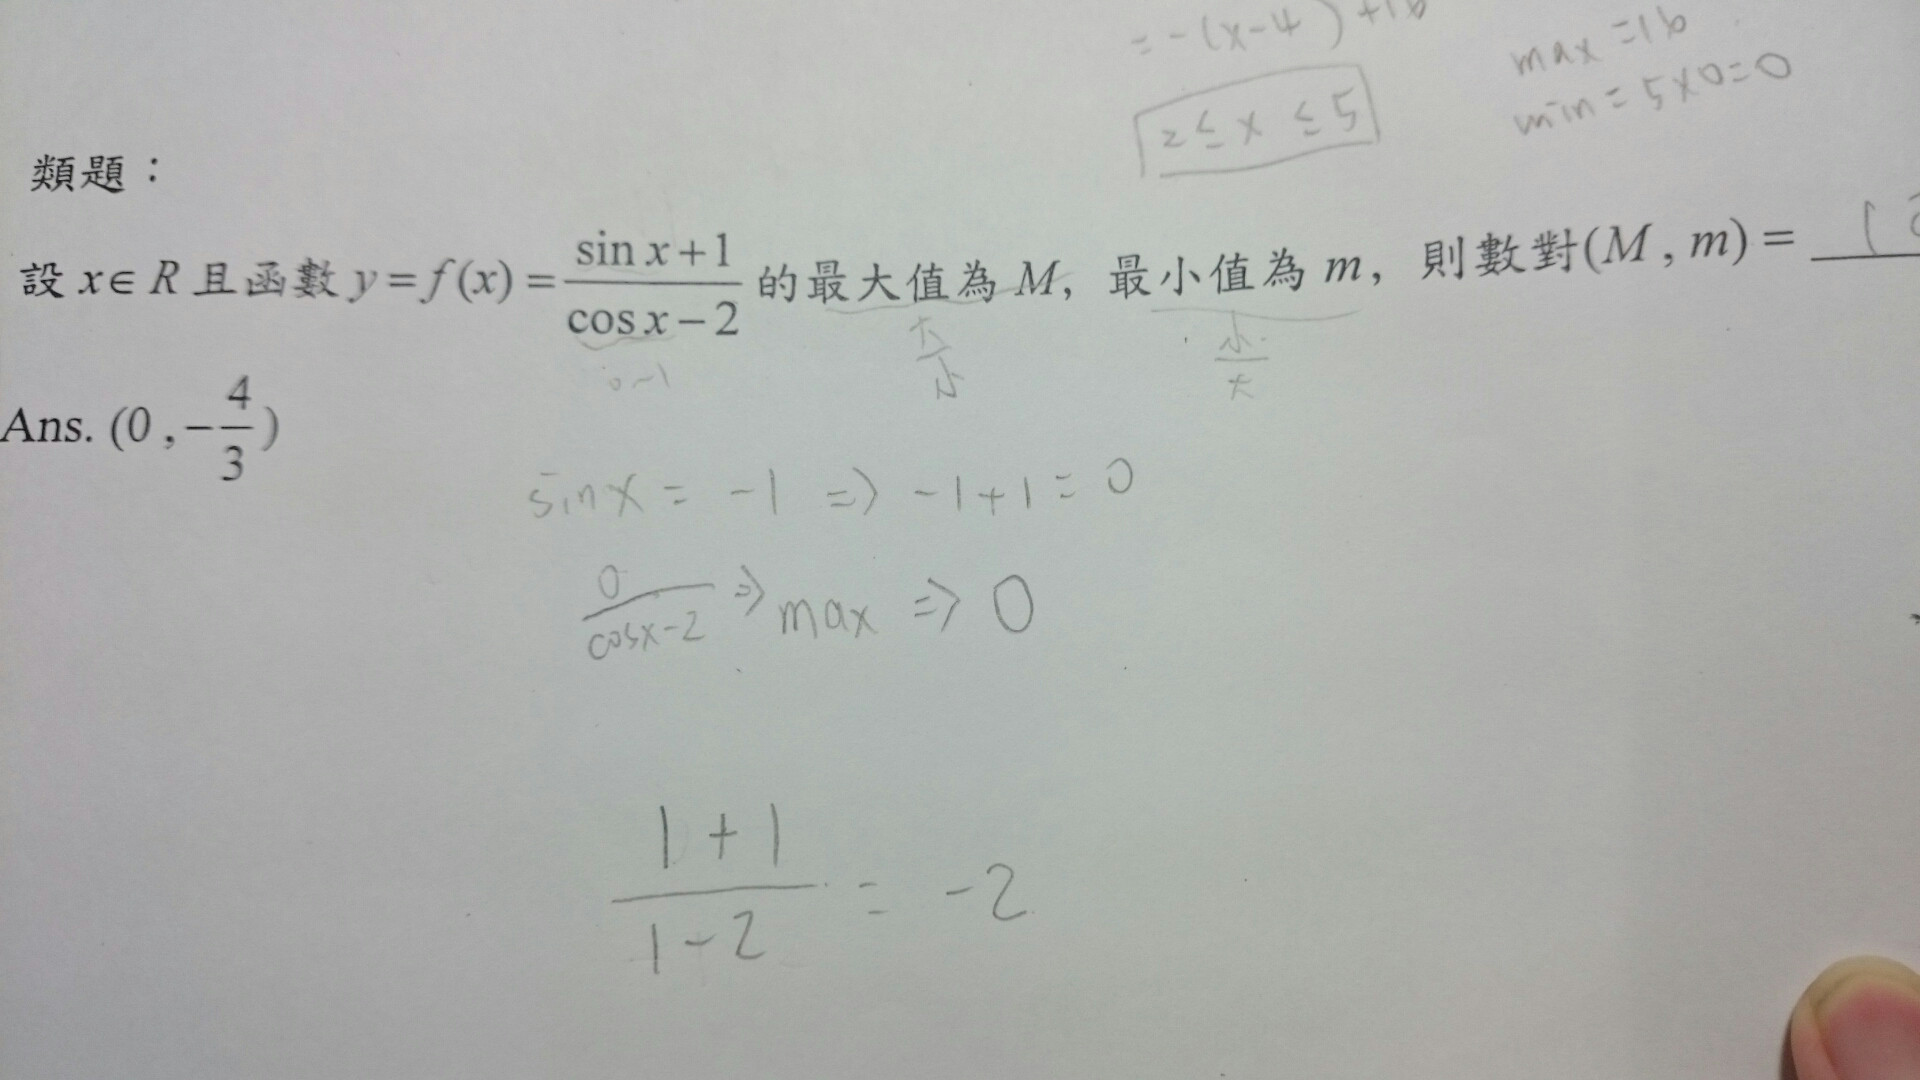 = -(x-4)+16
max = 16
2 ≤ x ≤ 5
min = 5×0=0
類題：
設 x∈R 且函數 y=f(x)=\frac{sin x+1}{cos x-2} 的最大值為 M，最小值為 m，則數對(M , m)=
大/小
小/大
Ans. (0 ,-\frac{4}{3})
sinx = -1 => -1+1 = 0
\frac{0}{cosx-2} => max => 0
\frac{1+1}{1-2} = -2